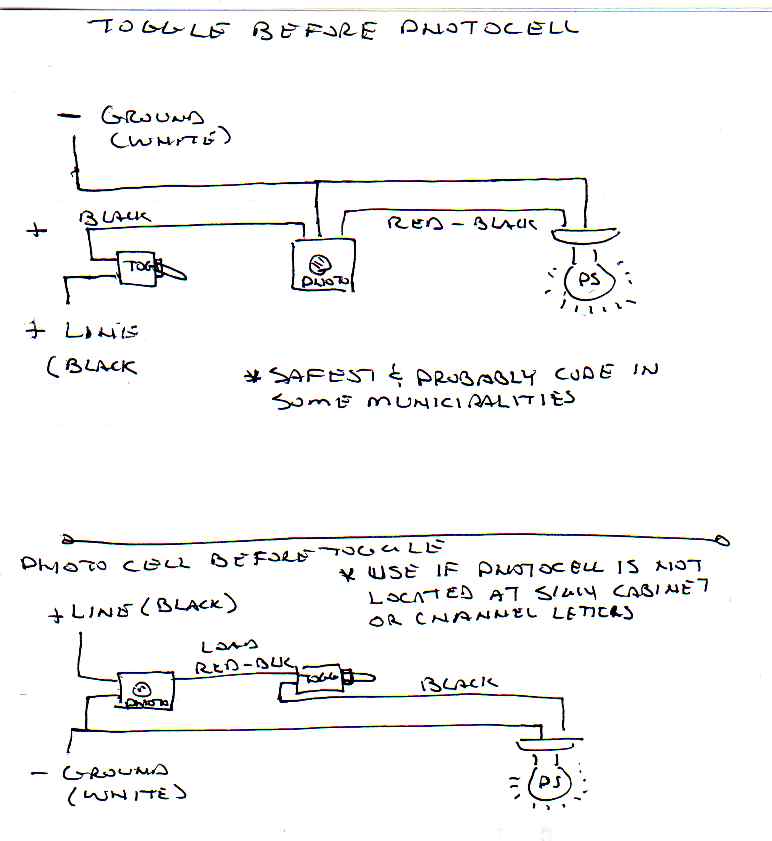 TOGGLE BEFORE PHOTOCELL
- GROUND
(WHITE)
+ BLACK
RED-BLACK
TOGG
PHOTO
PS
+ LINE
(BLACK
* SAFEST & PROBABLY CODE IN
SOME MUNICIPALITIES
PHOTO CELL BEFORE TOGGLE
* USE IF PHOTOCELL IS NOT
LOCATED AT SIGN CABINET
OR CHANNEL LETTERS
+ LINE (BLACK)
LOAD
RED-BLK
TOGG
PHOTO
BLACK
- GROUND
(WHITE)
PS